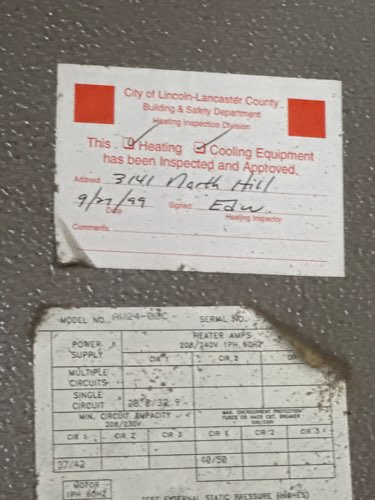 City of Lincoln-Lancaster County
Building & Safety Department
Heating Inspection Division
This Heating Cooling Equipment
has been Inspected and Approved.
Address 3141 North Hill
9/27/99 Edw
Date Signed Heating Inspector
Comments:
MODEL NO. SERIAL NO.
POWER SUPPLY HEATER AMPS
208/240V 1PH, 60HZ
CIR 1 CIR 2
MULTIPLE CIRCUITS
SINGLE CIRCUIT 28.8/32.9
MIN. CIRCUIT AMPACITY MAX. OVERCURRENT PROTECTION
208/230V FUSES OR HACR CKT. BREAKER
CIR 1 CIR 2 CIR 3 CIR 1 CIR 2 CIR 3
37/42 40/50
MOTOR
1PH 60HZ TEST EXTERNAL STATIC PRESSURE (INCHES)